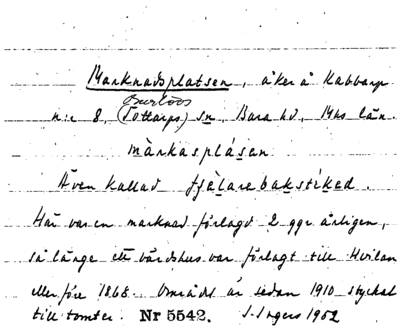 Marknadsplatsen, åker å Kabbarp
Burlövs
n:r 8, (Tottarps) sn, Bara hd, Mhs län.
màrkasplásen
Även kallad fjälarebakstiked.
Här var en marknad förlagd 2 ggr årligen,
så länge ett värdshus var förlagt till Hvilan
eller före 1868. Området är sedan 1910 styckat
till tomter. Nr 5542. S. Ingers 1952